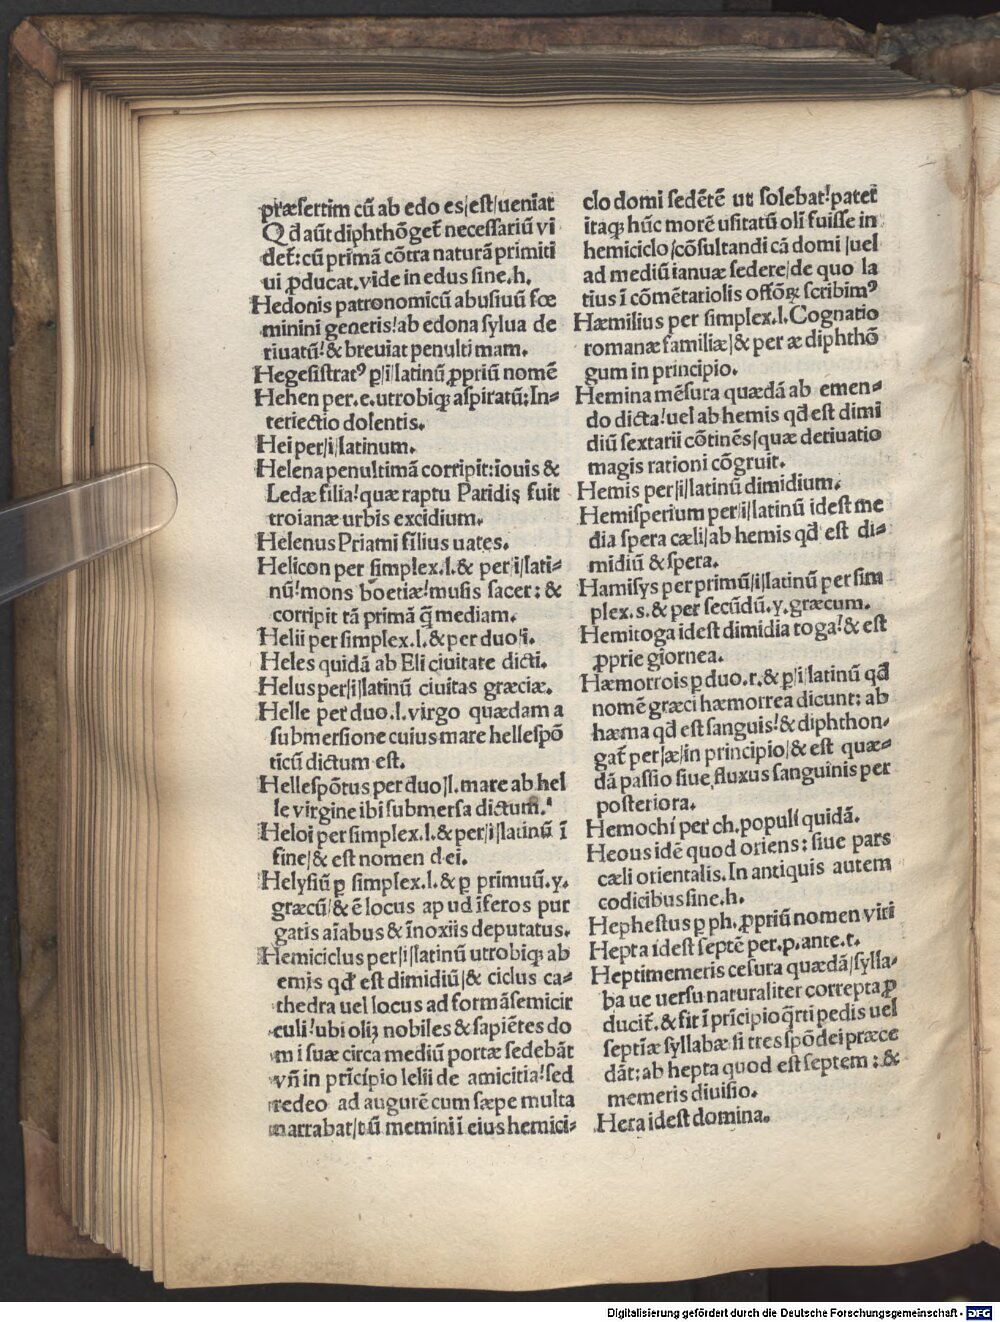 præsertim cũ ab edo es|est|ueniat
Qd̃ aũt diphthõget̃ necessariũ vi
det̃: cũ primã cõtra naturã primiti
ui ꝓducat. vide in edus sine.h.
Hedonis patronomicũ abusiuũ fœ
minini generis! ab edona sylua de
riuatũ! & breuiat penultimam.
Hegesistratꝰ ꝑ|i|latinũ ꝓpriũ nomẽ
Hehen per.e.utrobiqꝫ aspiratũ: In=
teriectio dolentis.
Hei per|i|latinum.
Helena penultimã corripit: iouis &
Ledæ filia! quæ raptu Paridis fuit
troianæ urbis excidium.
Helenus Priami filius uates.
Helicon per simplex.l.& per|i|lati=
nũ! mons boetiæ! musis sacer: &
corripit tã primã q̃ mediam.
Helii per simplex.l.& per duo|i.
Heles quidã ab Eli ciuitate dicti.
Helus per|i|latinũ ciuitas græciæ.
Helle per duo.l.virgo quædam a
submersione cuius mare hellespõ
ticũ dictum est.
Hellespõtus per duo|l.mare ab hel
le virgine ibi submersa dictum.
Heloi per simplex.l.& per|i|latinũ ĩ
fine|& est nomen dei.
Helysiũ ꝑ simplex.l.& ꝑ primuũ.y.
græcũ|& ẽ locus apud ĩferos pur
gatis aĩabus & ĩnoxiis deputatus.
Hemiciclus per|i|latinũ utrobiqꝫ ab
emis qd̃ est dimidiũ|& ciclus ca=
thedra uel locus ad formã semicir
culi! ubi oliꝫ nobiles & sapiẽtes do
mi suæ circa mediũ portæ sedebãt
vñ in prĩcipio lelii de amicitia! sed
redeo ad augurẽ cum sæpe multa
narrabat|tũ memini ĩ eius hemici=
clo domi sedẽtẽ ut solebat! patet̃
itaqꝫ hũc morẽ usitatũ oĩ fuisse in
hemiciclo|cõsultandi cã domi|uel
ad mediũ ianuæ sedere|de quo la
tius ĩ cõmẽtariolis offõꝝ scribimꝰ
Hæmilius per simplex.l.Cognatio
romanæ familiæ|& per æ diphthõ
gum in principio.
Hemina mẽsura quædã ab emen=
do dicta! uel ab hemis qd̃ est dimi
diũ sextarii cõtinẽs|quæ deriuatio
magis rationi cõgruit.
Hemis per|i|latinũ dimidium.
Hemisperium per|i|latinũ idest me
dia spera cæli|ab hemis qd̃ est di=
midiũ & spera.
Hamisys per primũ|i|latinũ per sim
plex.s.& per secũdũ.y.græcum.
Hemitoga idest dimidia toga! & est
ꝓprie giornea.
Hæmorrois ꝑ duo.r.& ꝑ|i|latinũ qd̃
nomẽ græci hæmorrea dicunt: ab
hæma qd̃ est sanguis! & diphthon=
gat̃ per|æ|in principio|& est quæ=
dã passio siue fluxus sanguinis per
posteriora.
Hemochi per ch.populi quidã.
Heous idẽ quod oriens: siue pars
cæli orientalis. In antiquis autem
codicibus sine.h.
Hephestus ꝑ ph.ꝓpriũ nomen viri
Hepta idest septẽ per.p.ante.t.
Heptimemeris cesura quædã|sylla=
ba ue uersu naturaliter correpta ꝓ
ducit̃.& fit ĩ prĩcipio q̃rti pedis uel
septiæ syllabæ si tres spõdei præce
dãt: ab hepta quod est septem: &
memeris diuisio.
Hera idest domina.
Digitalisierung gefördert durch die Deutsche Forschungsgemeinschaft - DFG